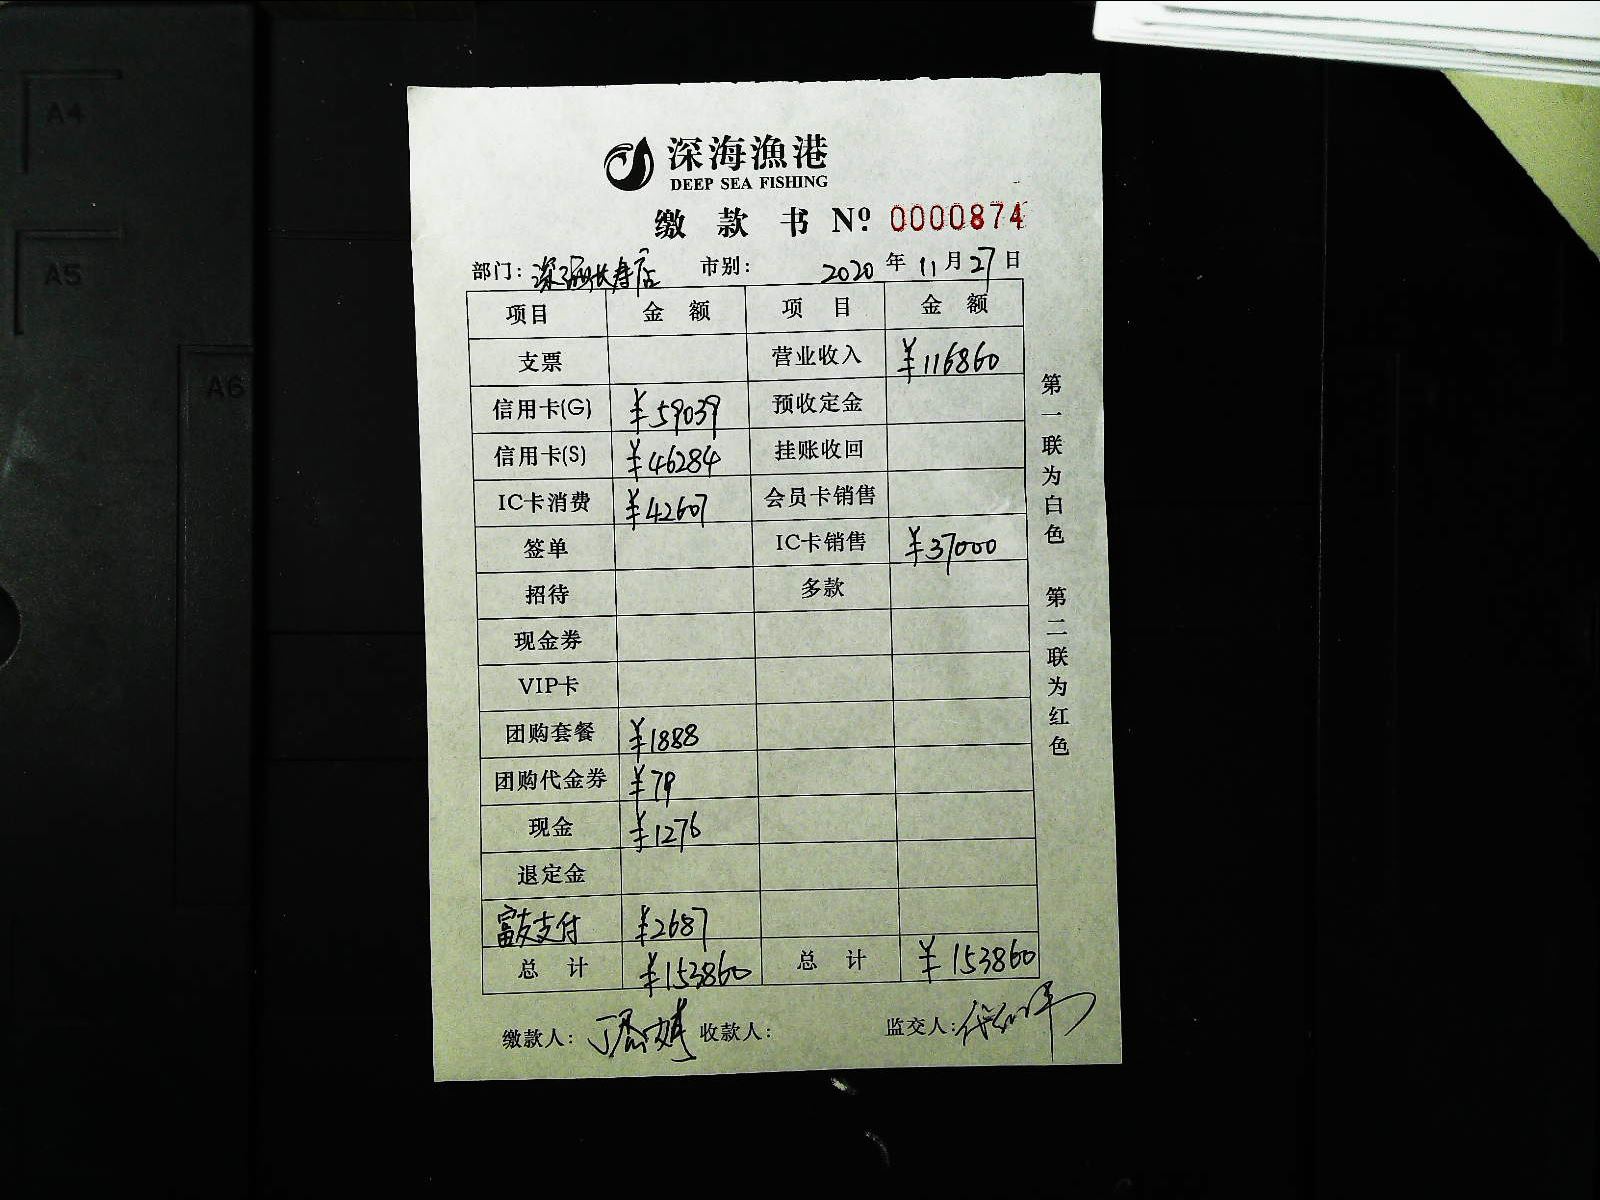 A4
A5
A6
深海漁港
DEEP SEA FISHING
缴 款 书 Nº: 0000874
部门: 深海长寿店 市别: 2020 年 11 月 27 日
项目 金 额 项 目 金 额
支票 营业收入 ¥116860
信用卡(G) ¥59039 预收定金
信用卡(S) ¥46284 挂账收回
IC卡消费 ¥42607 会员卡销售
签单 IC卡销售 ¥37000
招待 多款
现金券
VIP卡
团购套餐 ¥1888
团购代金券 ¥79
现金 ¥1276
退定金
富友支付 ¥2687
总 计 ¥153860 总 计 ¥153860
缴款人: 收款人: 监交人:
第一联为白色 第二联为红色